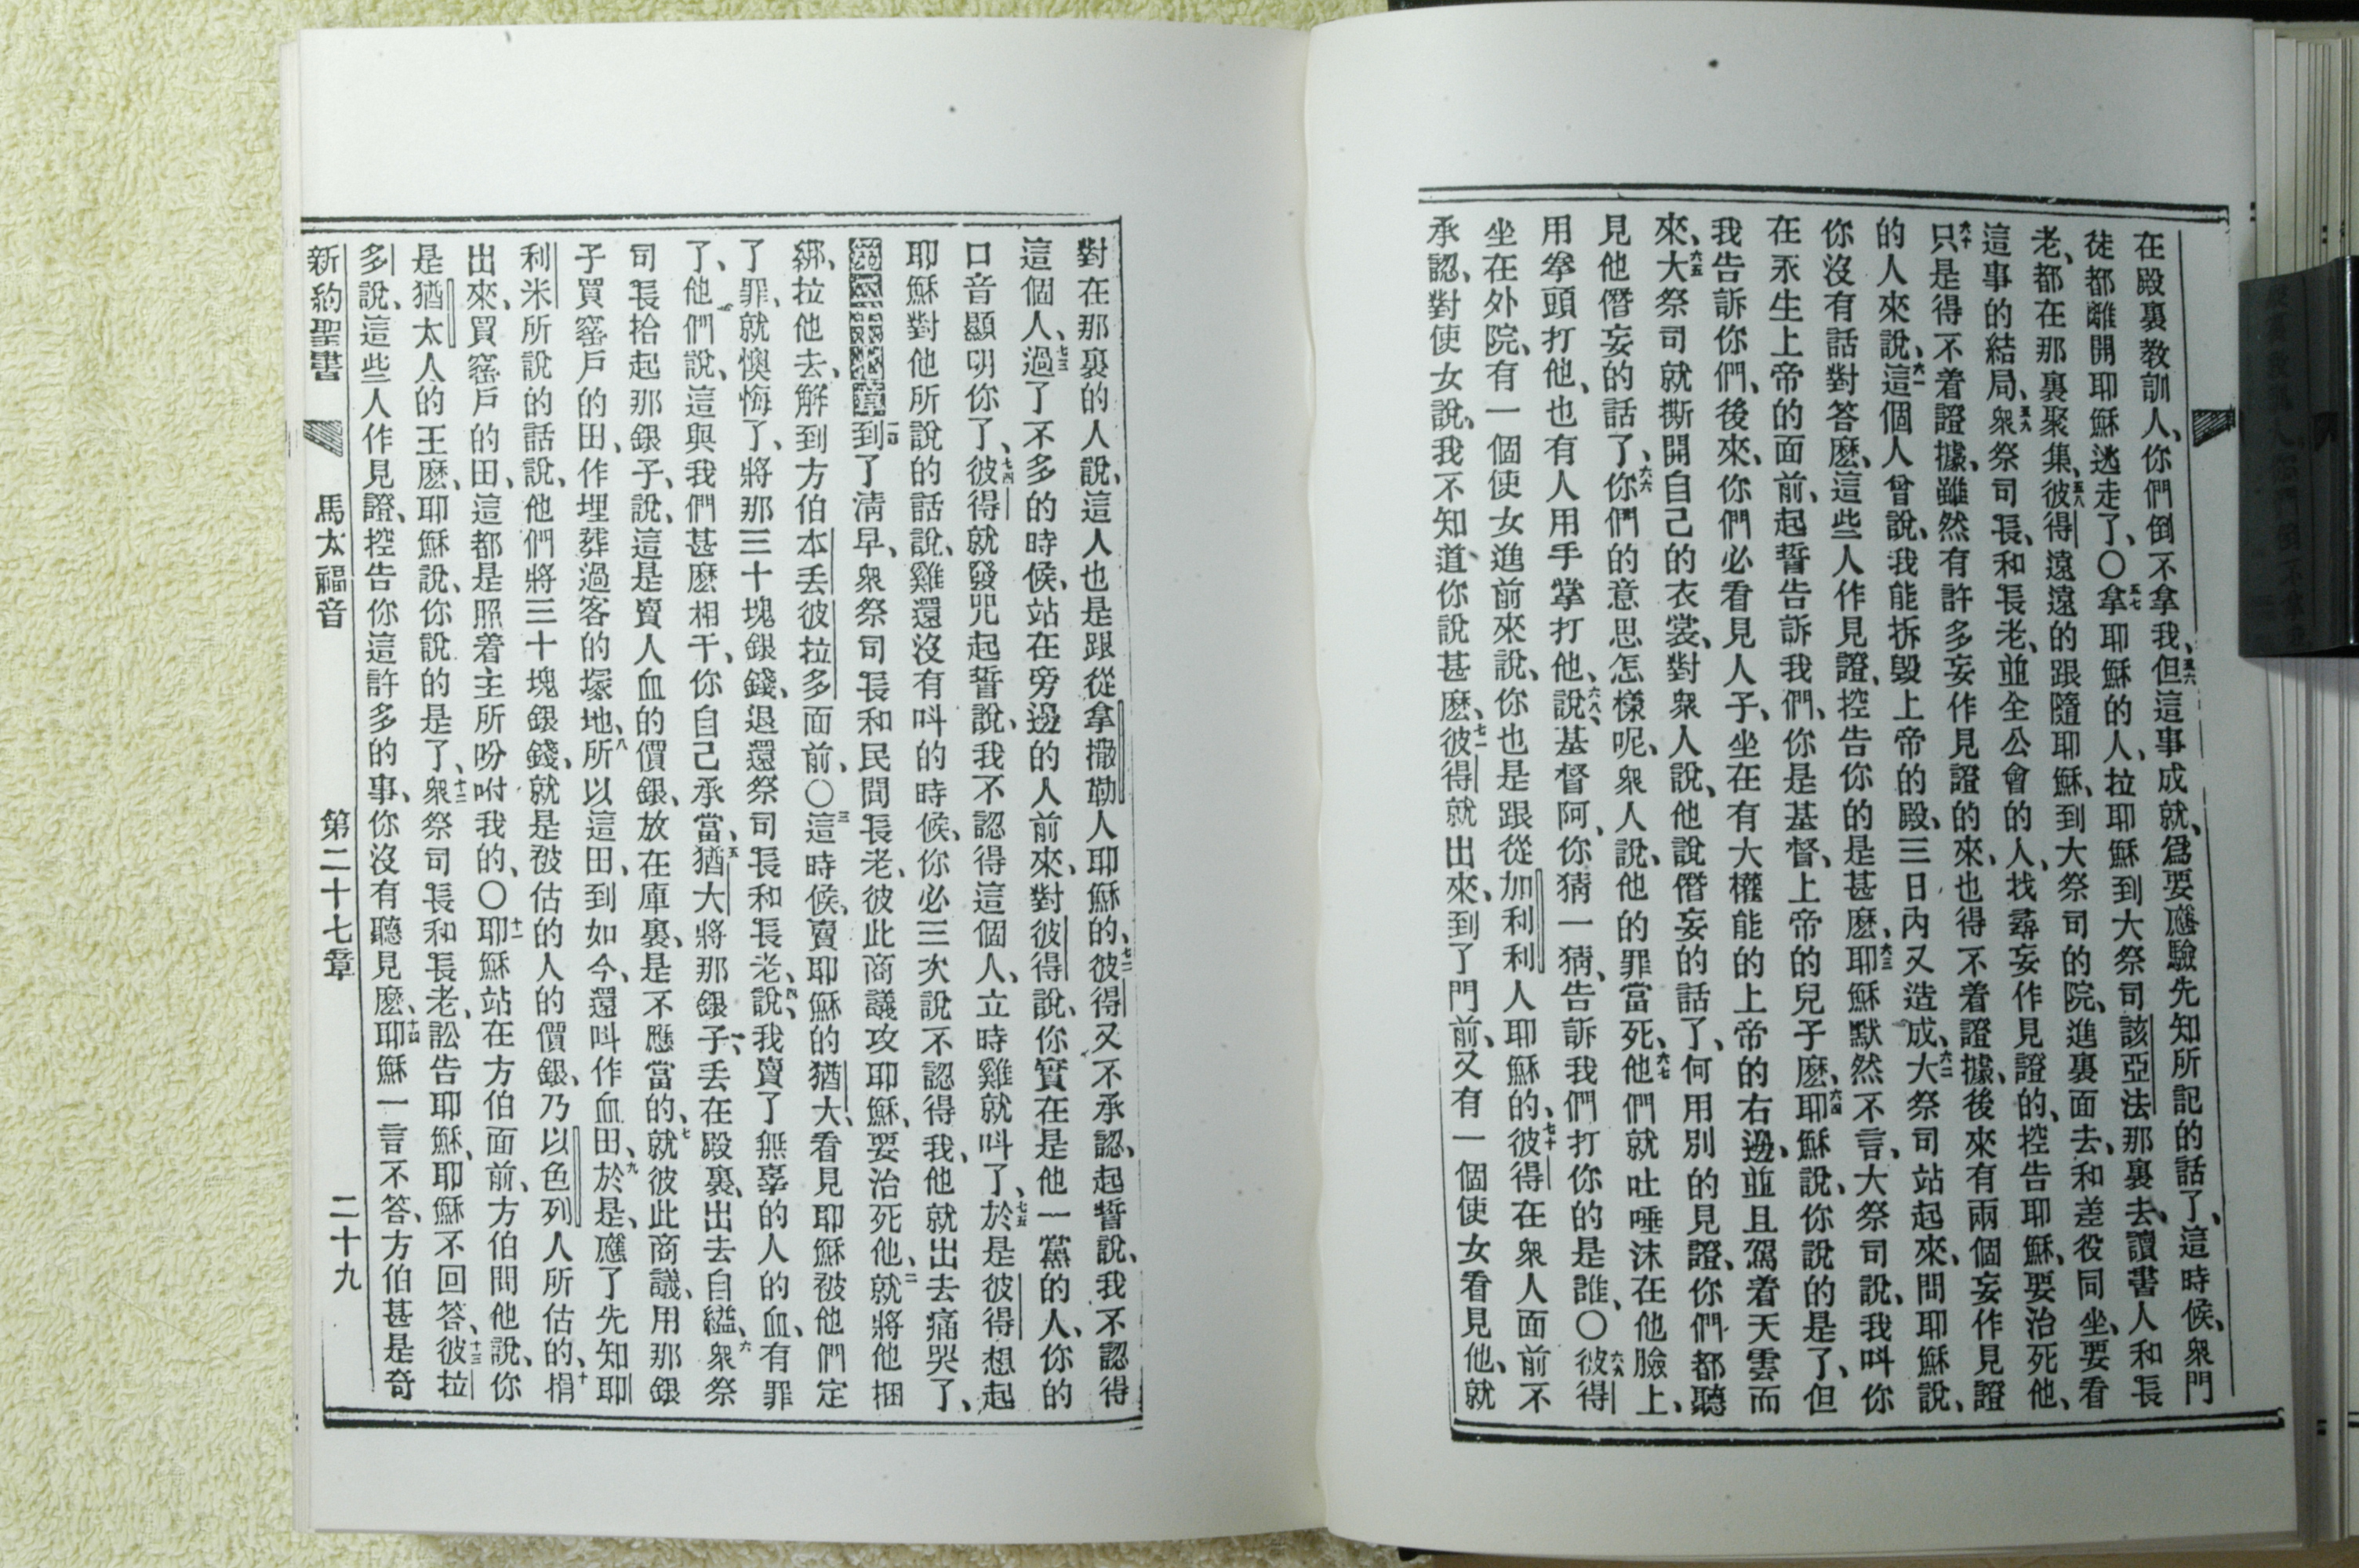 在殿裏教訓人、你們倒不拿我、五六但這事成就、爲要應驗先知所記的話了、這時候、衆門
徒都離開耶穌逃走了、〇五七拿耶穌的人、拉耶穌到大祭司該亞法那裏去、讀書人和長
老、都在那裏聚集、五八彼得遠遠的跟隨耶穌、到大祭司的院、進裏面去、和差役同坐、要看
這事的結局、五九衆祭司長、和長老、並全公會的人、找尋妄作見證的、控告耶穌、要治死他、
六十只是得不着證據、雖然有許多妄作見證的來、也得不着證據、後來有兩個妄作見證
的人來說、六一這個人曾說、我能拆毀上帝的殿、三日內又造成、六二大祭司站起來、問耶穌說、
你沒有話對答麽、這些人作見證、控告你的是甚麽、六三耶穌默然不言、大祭司說、我呌你
在永生上帝的面前、起誓告訴我們、你是基督、上帝的兒子麽、六四耶穌說、你說的是了、但
我告訴你們、後來、你們必看見人子、坐在有大權能的上帝的右邊、並且駕着天雲而
來、六五大祭司就撕開自己的衣裳、對衆人說、他說僭妄的話了、何用別的見證、你們都聽
見他僭妄的話了、六六你們的意思怎樣呢、衆人說、他的罪當死、六七他們就吐唾沫在他臉上、
用拳頭打他、也有人用手掌打他、六八說、基督阿、你猜一猜、告訴我們打你的是誰、〇六九彼得
坐在外院、有一個使女進前來說、你也是跟從加利利人耶穌的、七十彼得在衆人面前不
承認、對使女說、我不知道、你說甚麽、七一彼得就出來、到了門前、又有一個使女看見他、就
對在那裏的人說、這人也是跟從拿撒勒人耶穌的、七二彼得又不承認、起誓說、我不認得
這個人、七三過了不多的時候、站在旁邊的人前來、對彼得說、你實在是他一黨的人、你的
口音顯明你了、七四彼得就發咒起誓說、我不認得這個人、立時雞就呌了、七五於是彼得想起
耶穌對他所說的話說、雞還沒有呌的時候、你必三次說不認得我、他就出去痛哭了、
第二十七章一到了淸早、衆祭司長和民間長老、彼此商議攻耶穌、要治死他、二就將他捆
綁、拉他去、解到方伯本丢彼拉多面前、〇三這時候、賣耶穌的猶大、看見耶穌被他們定
了罪、就懊悔了、將那三十塊銀錢、退還祭司長和長老、四說、我賣了無辜的人的血、有罪
了、他們說、這與我們甚麽相干、你自己承當、五猶大將那銀子、丢在殿裏、出去自縊、六衆祭
司長拾起那銀子、說、這是賣人血的價銀、放在庫裏、是不應當的、七就彼此商議、用那銀
子買窰戶的田、作埋葬過客的塚地、八所以這田、到如今、還呌作血田、九於是、應了先知耶
利米所說的話說、他們將三十塊銀錢、就是被估的人的價銀、乃以色列人所估的、十捐
出來、買窰戶的田、這都是照着主所吩咐我的、〇十一耶穌站在方伯面前、方伯問他說、你
是猶太人的王麽、耶穌說、你說的是了、十二衆祭司長和長老、訟告耶穌、耶穌不回答、十三彼拉
多說、這些人作見證、控告你這許多的事、你沒有聽見麽、十四耶穌一言不答、方伯甚是奇
新約聖書 馬太福音 第二十七章 二十九